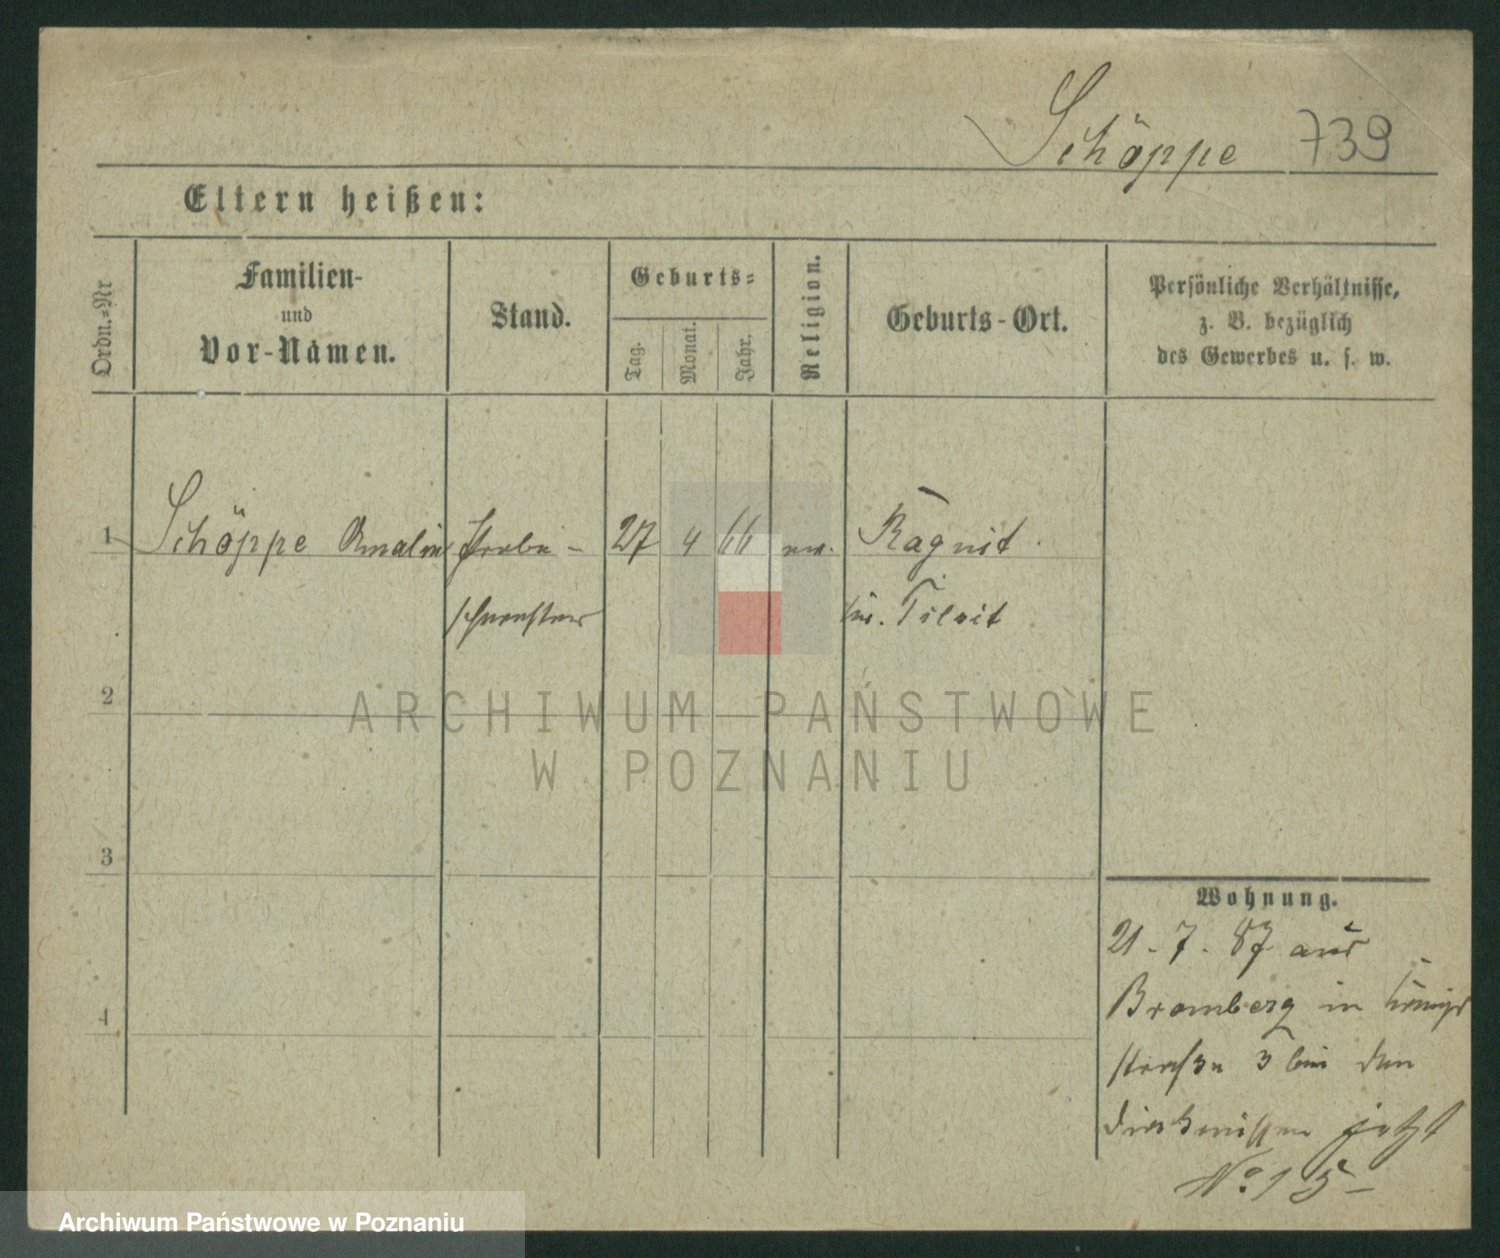 Schöppe 739
Eltern heißen:
Ordn.-Nr
Familien-
und
Vor-Namen.
Stand.
Geburts-
Tag.
Monat.
Jahr.
Religion.
Geburts-Ort.
Persönliche Verhältnisse,
z. B. bezüglich
des Gewerbes u. s. w.
1 Schöppe Amalie Probe- 27 4 66 ev. Ragnit
schwester Tilsit
2
3
4
Wohnung.
21.7.87 aus
Bromberg in Königs
straße 3 bei den
Diakonissen jetzt
No. 15
ARCHIWUM PAŃSTWOWE
W POZNANIU
Archiwum Państwowe w Poznaniu